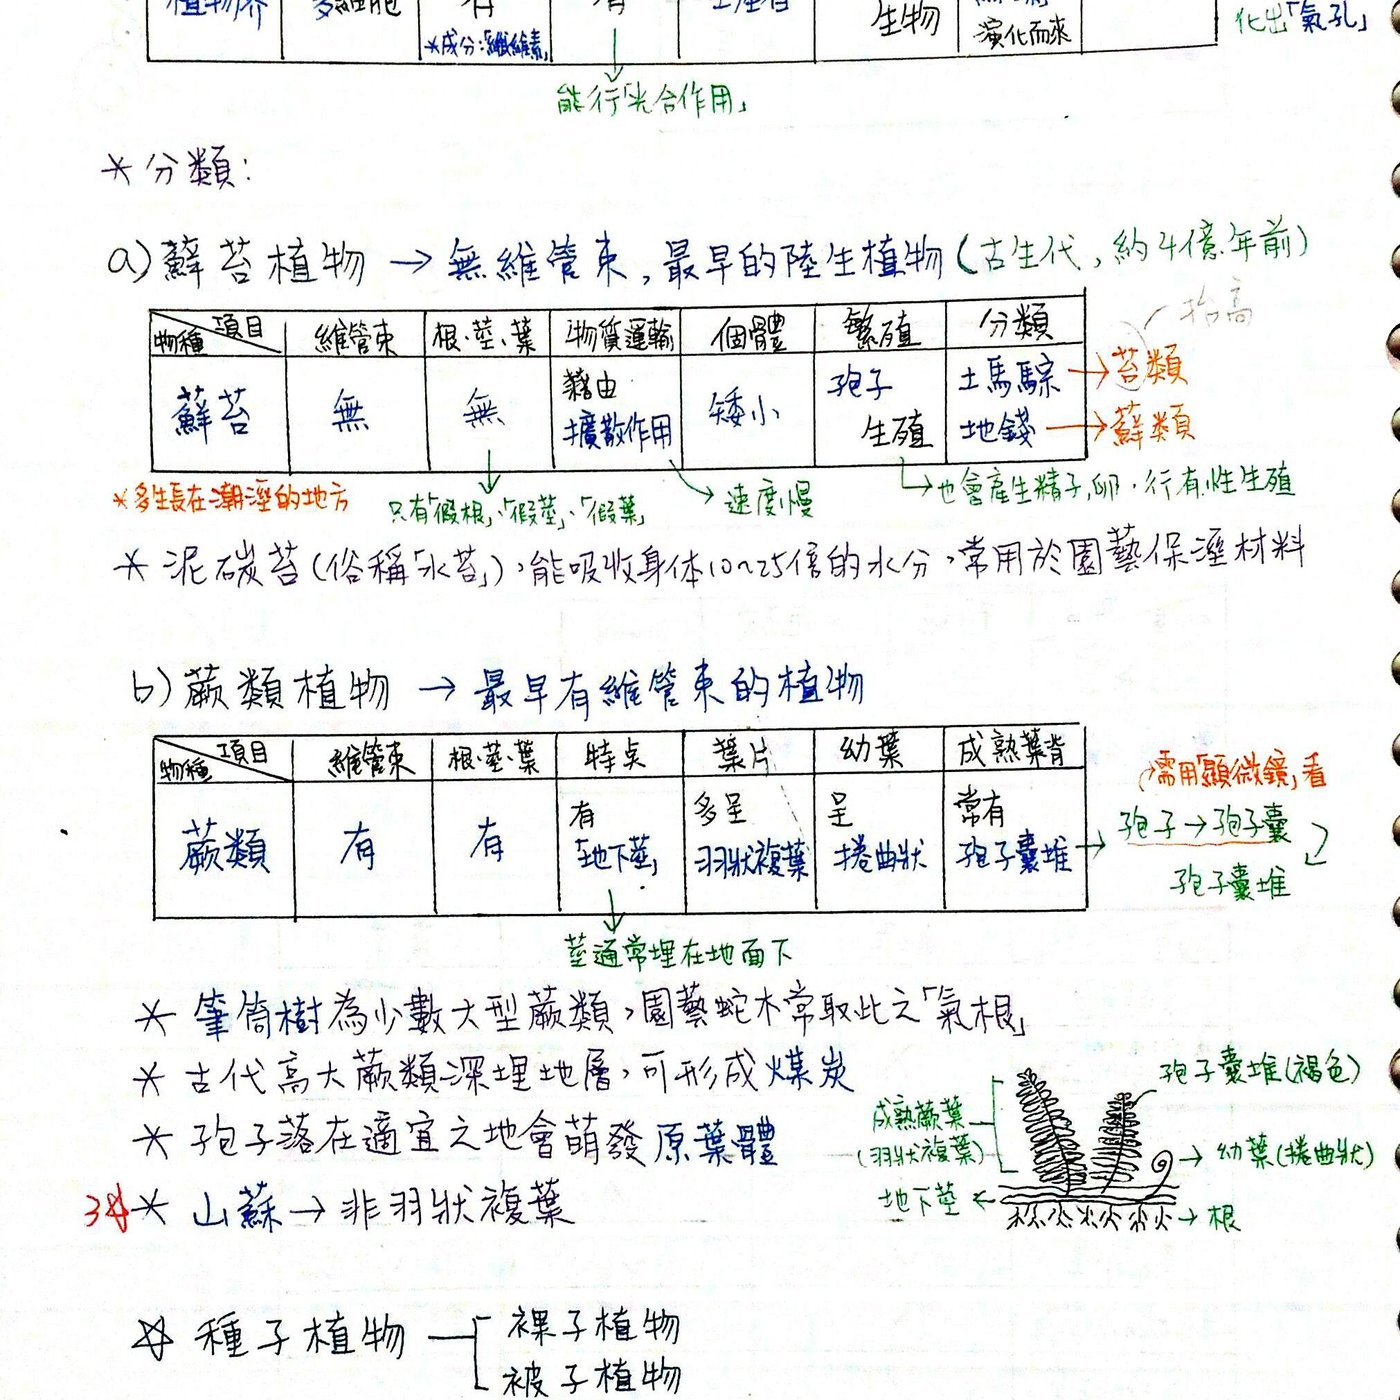 植物界 多細胞 有 有 生產者
＊成分:「纖維素」
生物
演化而來
化出「氣孔」
能行「光合作用」
＊分類:
a)蘚苔植物 → 無維管束,最早的陸生植物(古生代,約4億年前)
抬高
物種 項目 維管束 根、莖、葉 物質運輸 個體 繁殖 分類
蘚苔 無 無 藉由擴散作用 矮小 孢子生殖 土馬騌 → 苔類
地錢 → 蘚類
＊多生長在潮溼的地方 只有「假根」、「假莖」、「假葉」 速度慢 也會產生精子,卵,行有性生殖
＊泥碳苔(俗稱「水苔」),能吸收身体10~25倍的水分,常用於園藝保溼材料
b)蕨類植物 → 最早有維管束的植物
物種 項目 維管束 根、莖、葉 特点 葉片 幼葉 成熟葉背
需用「顯微鏡」看
蕨類 有 有 有「地下莖」 多呈羽狀複葉 呈捲曲狀 常有孢子囊堆 → 孢子→孢子囊
孢子囊堆
莖通常埋在地面下
＊筆筒樹為少數大型蕨類,園藝蛇木常取此之「氣根」
＊古代高大蕨類深埋地層,可形成煤炭
＊孢子落在適宜之地會萌發原葉體
3☆＊山蘇→非羽狀複葉
孢子囊堆(褐色)
成熟蕨葉
(羽狀複葉)
幼葉(捲曲狀)
地下莖
根
☆種子植物
裸子植物
被子植物